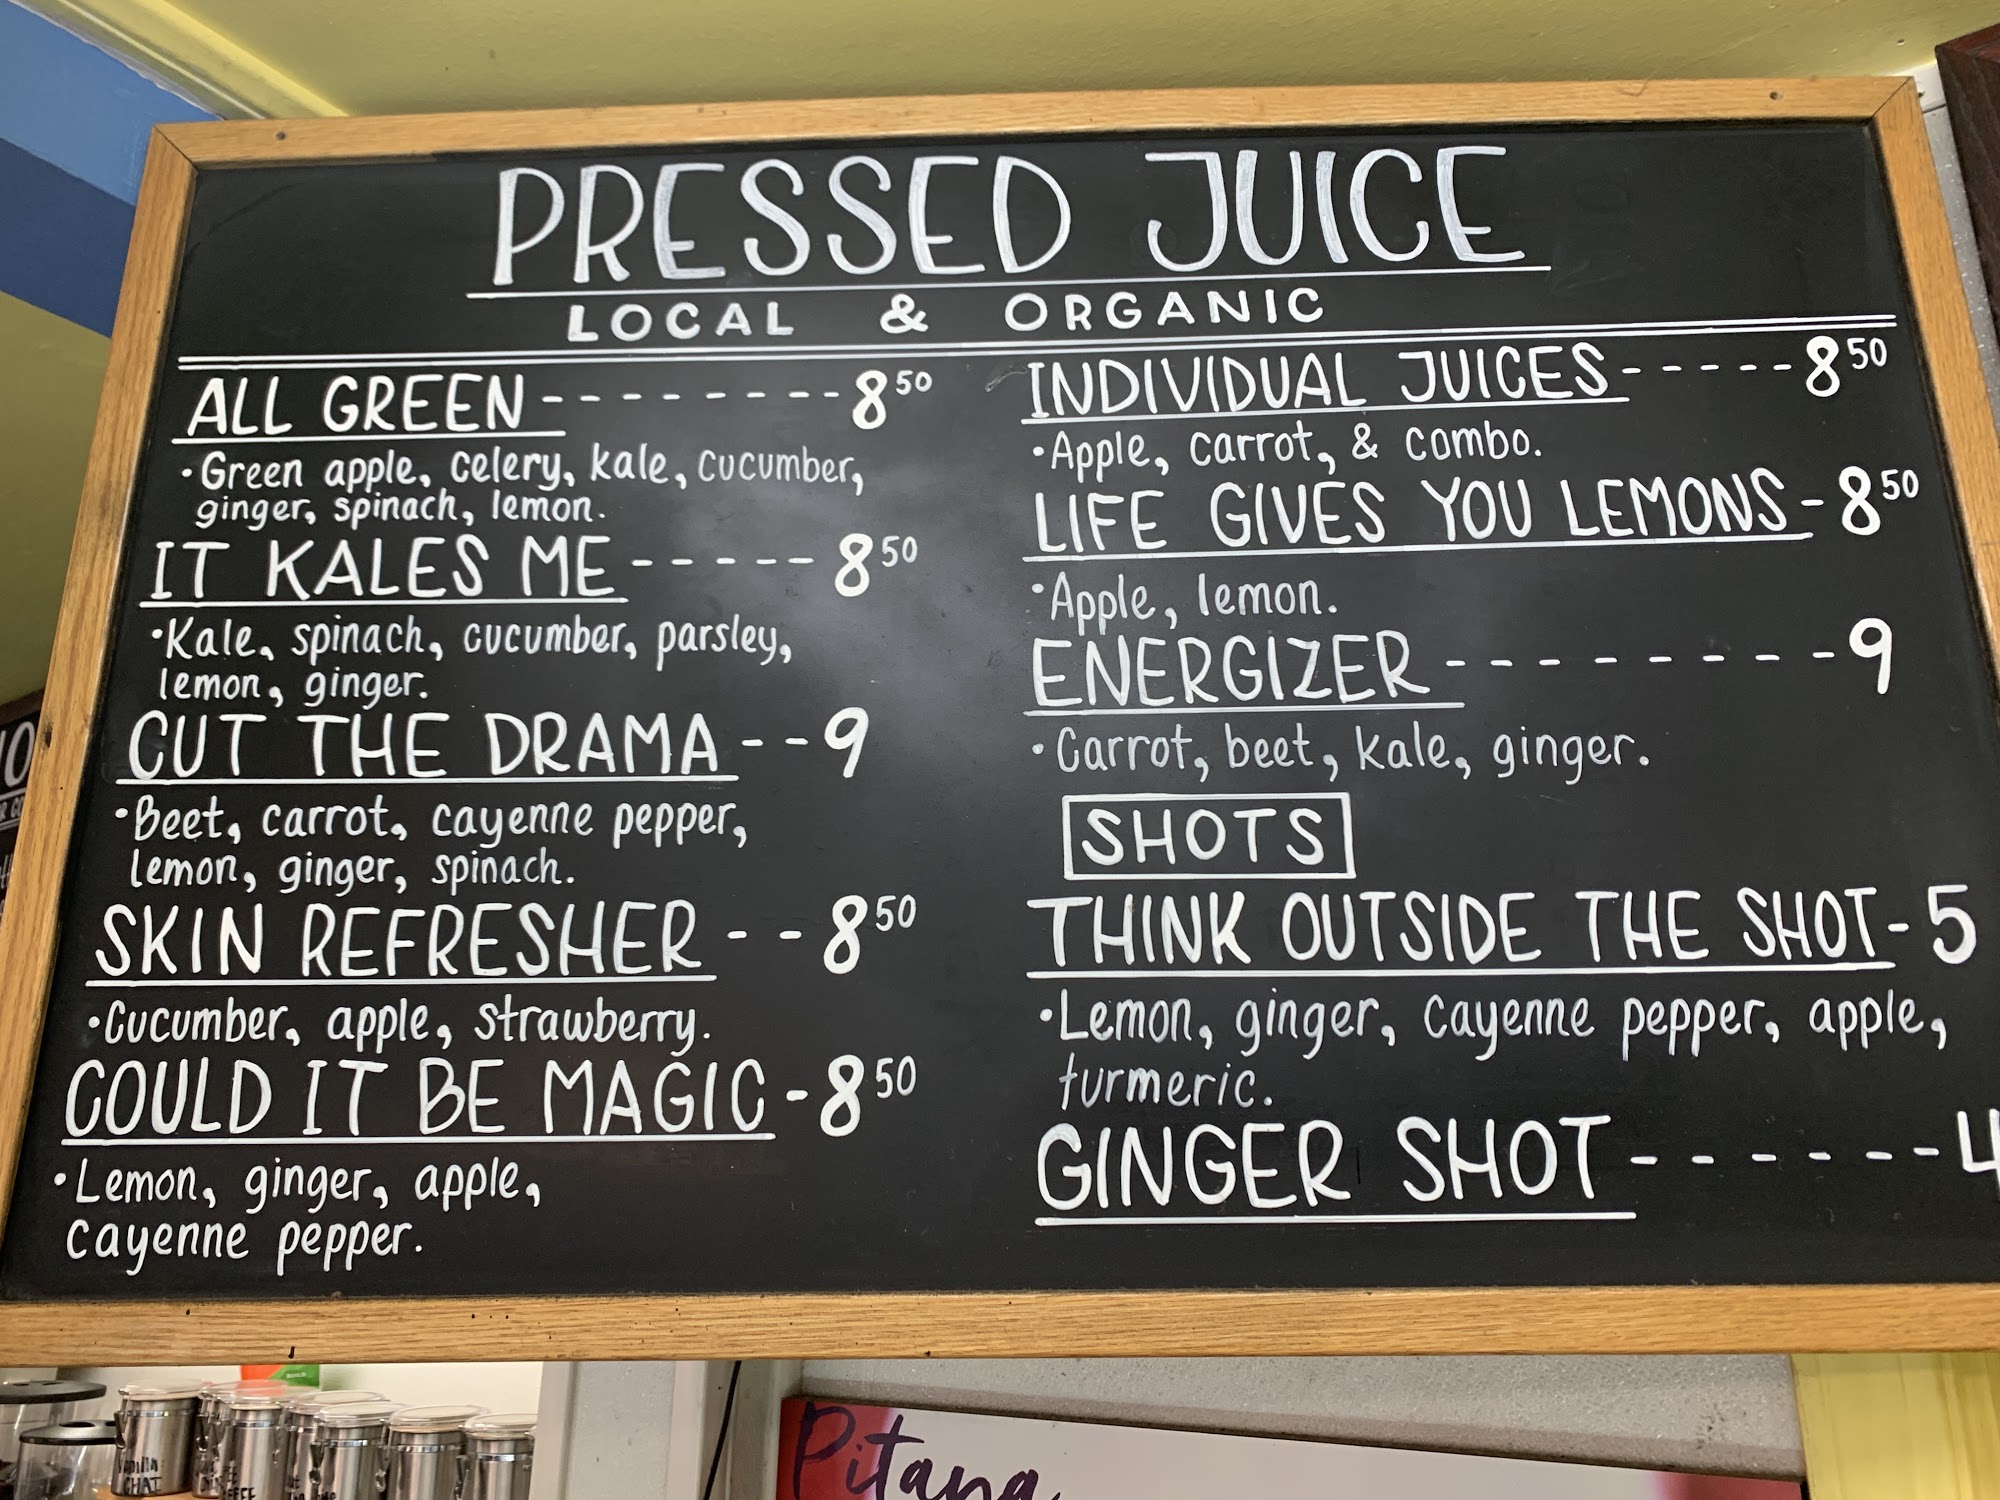 PRESSED JUICE
LOCAL & ORGANIC
ALL GREEN - - - - - - - - 8 50
• Green apple, celery, kale, cucumber,
ginger, spinach, lemon.
IT KALES ME - - - - - 8 50
• Kale, spinach, cucumber, parsley,
lemon, ginger.
CUT THE DRAMA - - 9
• Beet, carrot, cayenne pepper,
lemon, ginger, spinach.
SKIN REFRESHER - - 8 50
• Cucumber, apple, strawberry.
COULD IT BE MAGIC - 8 50
• Lemon, ginger, apple,
cayenne pepper.
INDIVIDUAL JUICES - - - - - 8 50
• Apple, carrot, & combo.
LIFE GIVES YOU LEMONS - 8 50
• Apple, lemon.
ENERGIZER - - - - - - - - - 9
• Carrot, beet, kale, ginger.
SHOTS
THINK OUTSIDE THE SHOT - 5
• Lemon, ginger, cayenne pepper, apple,
turmeric.
GINGER SHOT - - - - - - 4
Vanilla
CHAI
Pitana